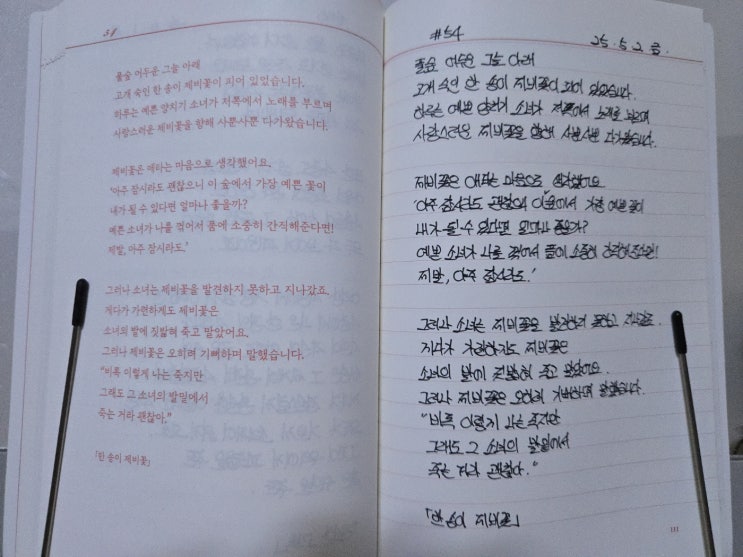 54
풀숲 어두운 그늘 아래
고개 숙인 한 송이 제비꽃이 피어 있었습니다.
하루는 예쁜 양치기 소녀가 저쪽에서 노래를 부르며
사랑스러운 제비꽃을 향해 사뿐사뿐 다가왔습니다.
제비꽃은 애타는 마음으로 생각했어요.
'아주 잠시라도 괜찮으니 이 숲에서 가장 예쁜 꽃이
내가 될 수 있다면 얼마나 좋을까?
예쁜 소녀가 나를 꺾어서 품에 소중히 간직해준다면!
제발, 아주 잠시라도.'
그러나 소녀는 제비꽃을 발견하지 못하고 지나갔죠.
게다가 가련하게도 제비꽃은
소녀의 발에 짓밟혀 죽고 말았어요.
그러나 제비꽃은 오히려 기뻐하며 말했습니다.
"비록 이렇게 나는 죽지만
그래도 그 소녀의 발밑에서
죽는 거라 괜찮아."
「한 송이 제비꽃」
#54
25. 5. 2. 금.
풀숲 어두운 그늘 아래
고개 숙인 한 송이 제비꽃이 피어 있었습니다.
하루는 예쁜 양치기 소녀가 저쪽에서 노래를 부르며
사랑스러운 제비꽃을 향해 사뿐사뿐 다가왔습니다.
제비꽃은 애타는 마음으로 생각했어요.
'아주 잠시라도 괜찮으니 이 숲에서 가장 예쁜 꽃이
내가 될 수 있다면 얼마나 좋을까?
예쁜 소녀가 나를 꺾어서 품에 소중히 간직해준다면!
제발, 아주 잠시라도.'
그러나 소녀는 제비꽃을 발견하지 못하고 지나갔죠.
게다가 가련하게도 제비꽃은
소녀의 발에 짓밟혀 죽고 말았어요.
그러나 제비꽃은 오히려 기뻐하며 말했습니다.
"비록 이렇게 나는 죽지만
그래도 그 소녀의 발밑에서
죽는 거라 괜찮아."
「한 송이 제비꽃」
111